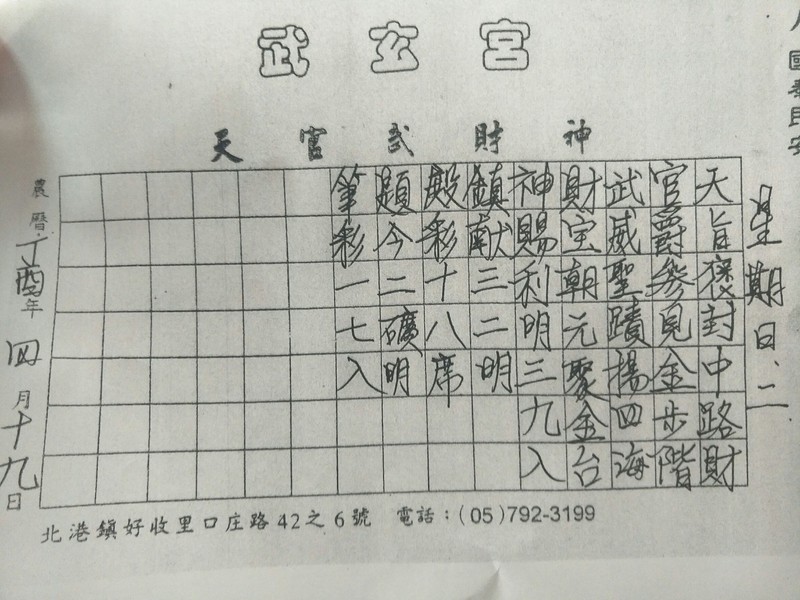 武玄宮
天官武財神
國泰民安
星期日、二
天旨褒封中路財
官爵參見金步階
武威聖蹟揚四海
財宝朝元聚金台
神賜利明三九入
鎮献三二明
殿彩十八席
題今二礦明
筆彩一七入
農曆:丁酉年四月十九日
北港鎮好收里口庄路42之6號 電話：(05)792-3199